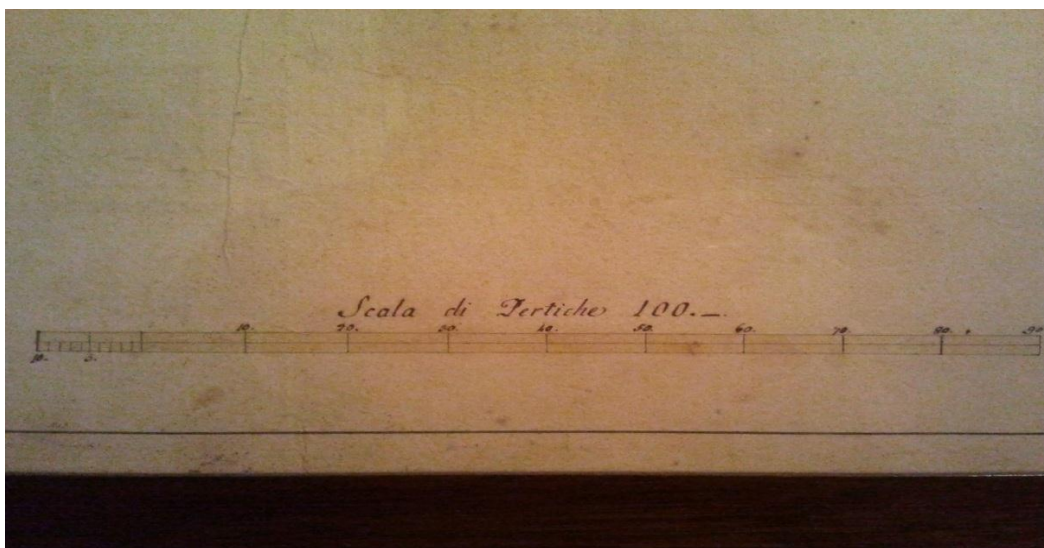 Scala di Pertiche 100.
10. 20. 30. 40. 50. 60. 70. 80. 90
10. 5.